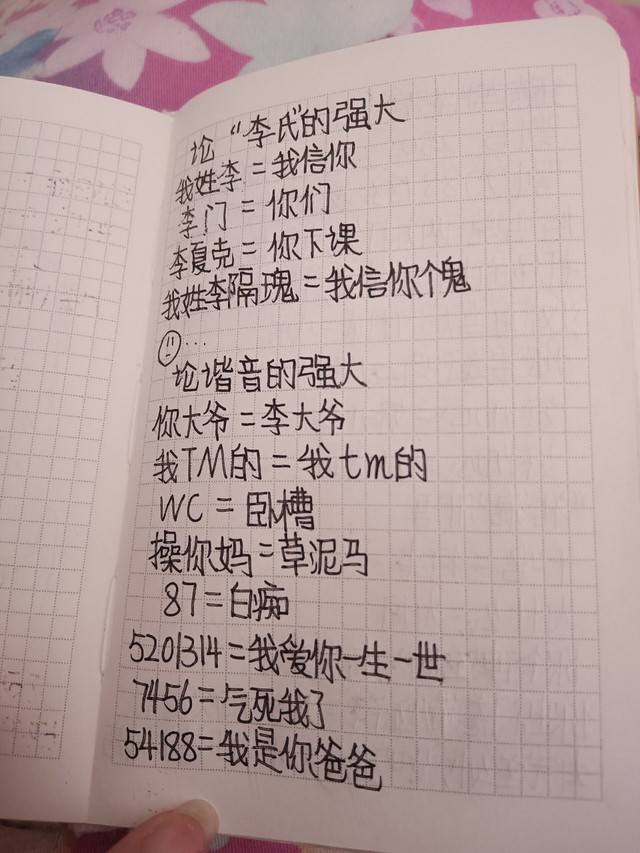 论“李氏”的强大
我姓李=我信你
李门=你们
李夏克=你下课
我姓李隔瑰=我信你个鬼
...
论谐音的强大
你大爷=李大爷
我TM的=我tm的
WC=卧槽
操你妈=草泥马
87=白痴
5201314=我爱你一生一世
7456=气死我了
54188=我是你爸爸